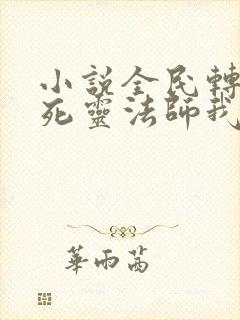 小說全民轉
死靈法師我
華雨茜